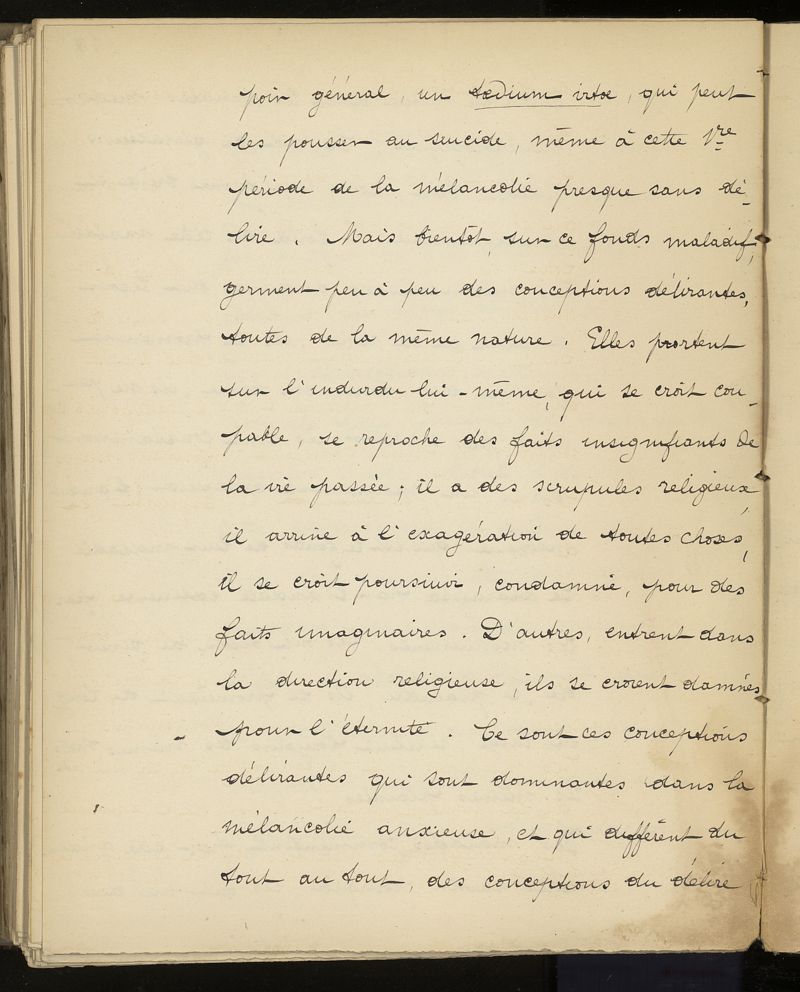 poir général, un tædium vitæ, qui peut
les pousser au suicide, même à cette 1re
période de la mélancolie presque sans dé-
lire. Mais bientôt, sur ce fonds maladif,
germent peu à peu des conceptions délirantes,
toutes de la même nature. Elles portent
sur l'individu lui-même, qui se croit cou-
pable, se reproche des faits insignifiants de
la vie passée; il a des scrupules religieux,
il arrive à l'exagération de toutes choses,
il se croit poursuivi, condamné, pour des
faits imaginaires. D'autres, entrent dans
la direction religieuse, ils se croient damnés
pour l'éternité. Ce sont ces conceptions
délirantes qui sont dominantes dans la
mélancolie anxieuse, et qui diffèrent du
tout au tout, des conceptions du délire